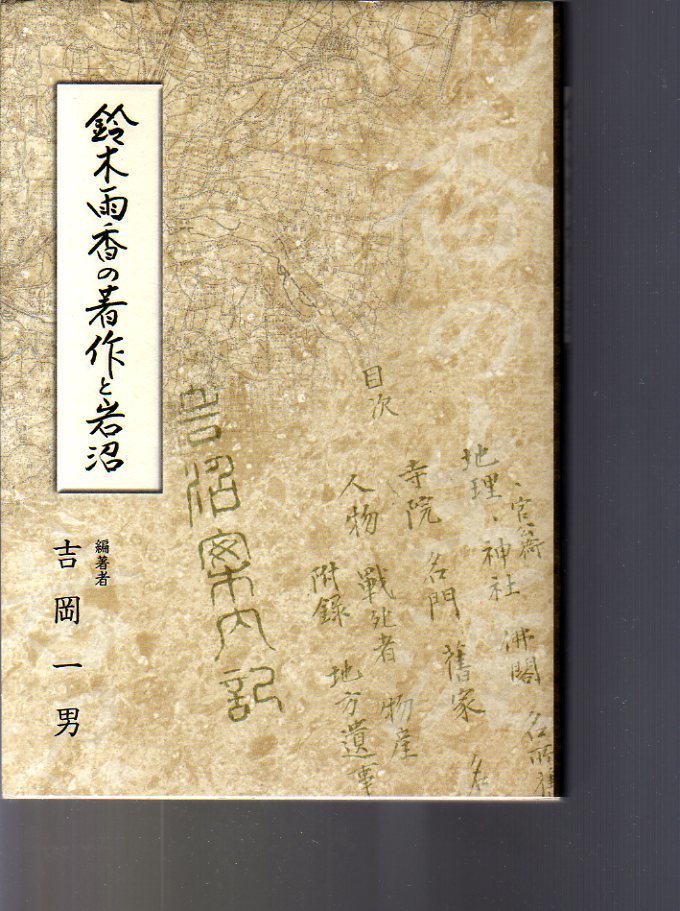 鈴木雨香の著作と岩沼
編著者
吉岡一男
岩沼案内記
目次
地理、神社 佛閣 名所
寺院 名門 舊家
人物 戰死者 物産
附錄 地方遺事